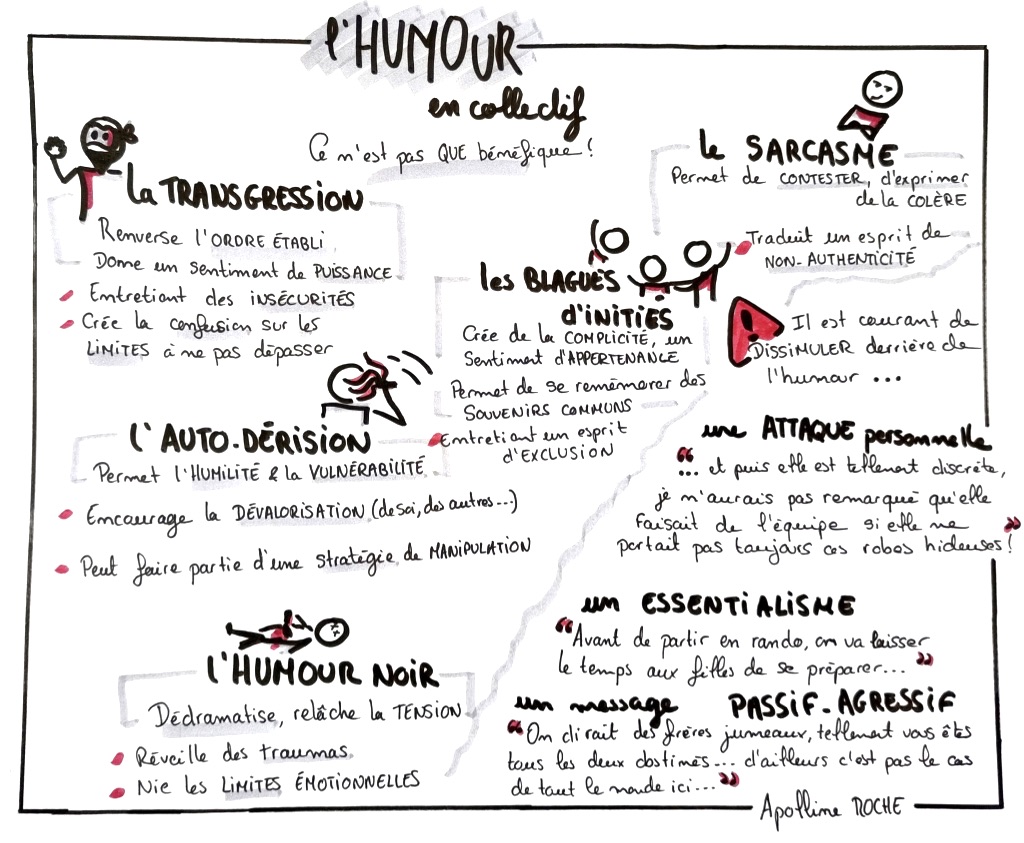 l'HUMOUR
en collectif
Ce n'est pas QUE bénéfique !
la TRANSGRESSION
Renverse l'ORDRE ÉTABLI
Donne un sentiment de PUISSANCE
Entretient des INSÉCURITÉS
Crée la confusion sur les
LIMITES à ne pas dépasser
l'AUTO-DÉRISION
Permet l'HUMILITÉ & la VULNÉRABILITÉ
Encourage la DÉVALORISATION (de soi, des autres...)
Peut faire partie d'une stratégie de MANIPULATION
l'HUMOUR NOIR
Dédramatise, relâche la TENSION
Réveille des traumas
Nie les LIMITES ÉMOTIONNELLES
les BLAGUES
d'INITIÉS
Crée de la COMPLICITÉ, un
Sentiment d'APPERTENANCE
Permet de se remémorer des
SOUVENIRS COMMUNS
Entretient un esprit
d'EXCLUSION
le SARCASME
Permet de CONTESTER, d'exprimer
de la COLÈRE
Traduit un esprit de
NON-AUTHENTICITÉ
!
Il est courant de
DISSIMULER derrière de
l'humour ...
une ATTAQUE personnelle
"... et puis elle est tellement discrète,
je n'aurais pas remarqué qu'elle
faisait de l'équipe si elle ne
portait pas toujours ces robes hideuses ! "
un ESSENTIALISME
"Avant de partir en rando, on va laisser
le temps aux filles de se préparer... "
un message PASSIF-AGRESSIF
"On dirait des frères jumeaux, tellement vous êtes
tous les deux obstinés... d'ailleurs c'est pas le cas
de tout le monde ici... "
Apolline ROCHE